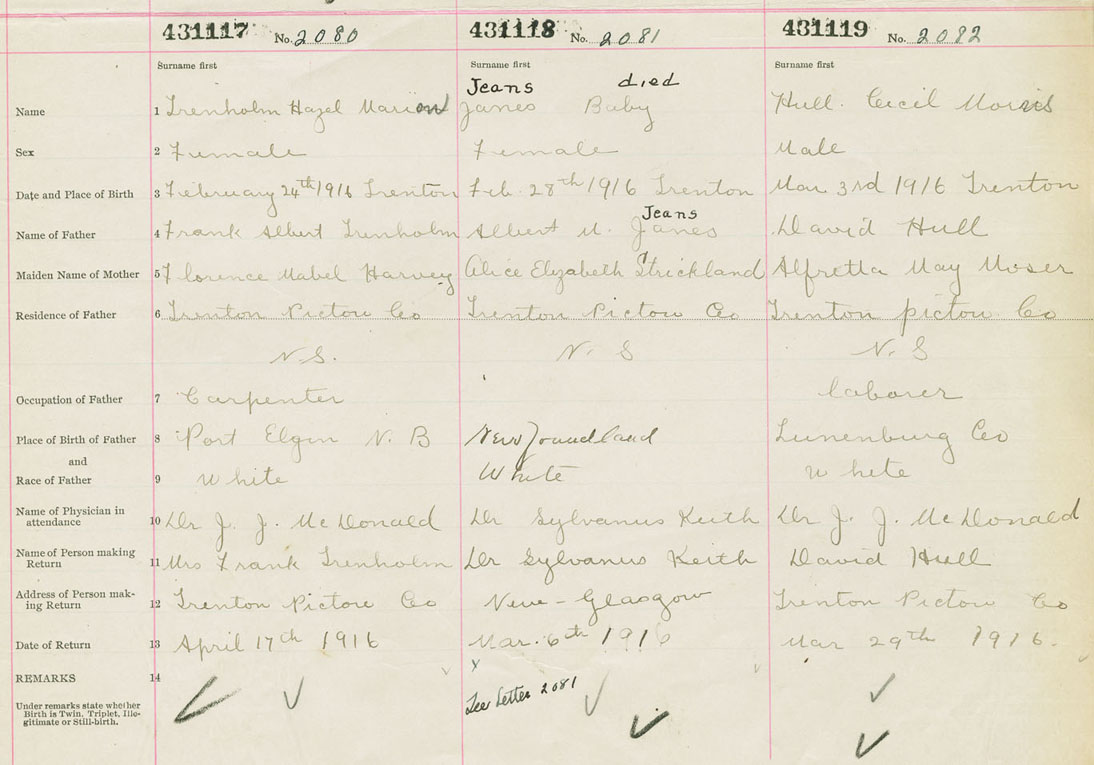 431117 No. 2080 431118 No. 2081 431119 No. 2082
Surname first Surname first Surname first
Jeans died
Name 1 Trenholm Hazel Marion Janes Baby Hull. Cecil Morris
Sex 2 Female Female Male
Date and Place of Birth 3 February 24th 1916 Trenton Feb. 28th 1916 Trenton Mar 3rd 1916 Trenton
Jeans
Name of Father 4 Frank Albert Trenholm Albert M. Janes David Hull
Maiden Name of Mother 5 Florence Mabel Harvey Alice Elizabeth Strickland Alfretta May Moser
Residence of Father 6 Trenton Pictou Co Trenton Pictou Co Trenton pictou Co
N.S. N. S N. S
Occupation of Father 7 Carpenter laborer
Place of Birth of Father 8 Port Elgin N. B Newfoundland Lunenburg Co
and
Race of Father 9 White White White
Name of Physician in
attendance 10 Dr J. J. McDonald Dr Sylvanus Keith Dr J. J. McDonald
Name of Person making
Return 11 Mrs Frank Trenholm Dr Sylvanus Keith David Hull
Address of Person mak-
ing Return 12 Trenton Pictou Co New-Glasgow Trenton Pictou Co
Date of Return 13 April 17th 1916 Mar. 6th 1916 Mar 29th 1916.
REMARKS 14 x
Under remarks state whether
Birth is Twin, Triplet, Ille-
gitimate or Still-birth.
See Letter 2081